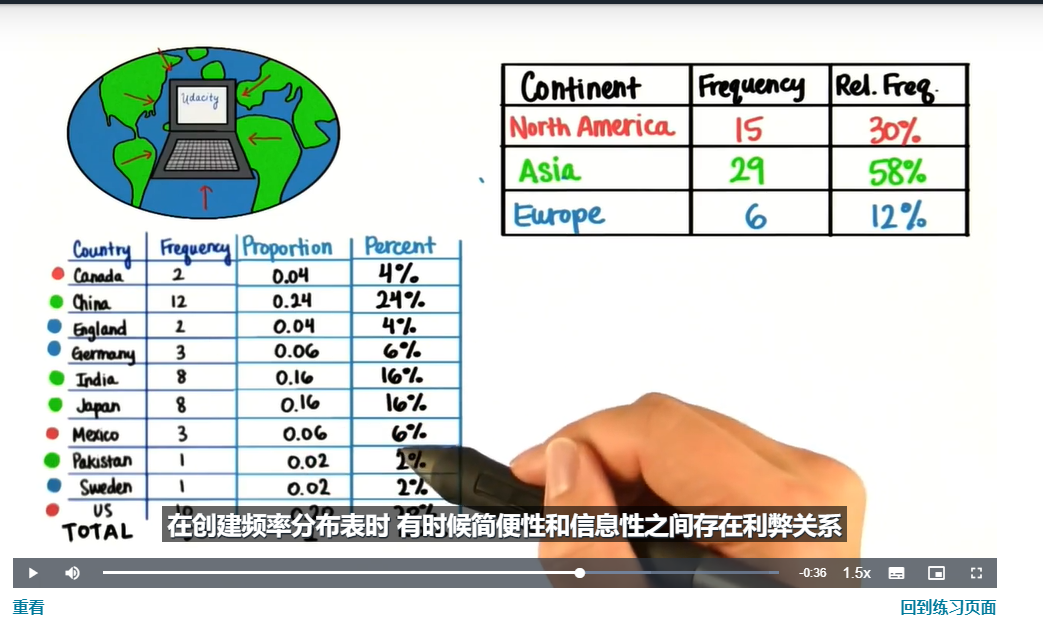 Udacity
Continent Frequency Rel. Freq.
North America 15 30%
Asia 29 58%
Europe 6 12%
Country Frequency Proportion Percent
Canada 2 0.04 4%
China 12 0.24 24%
England 2 0.04 4%
Germany 3 0.06 6%
India 8 0.16 16%
Japan 8 0.16 16%
Mexico 3 0.06 6%
Pakistan 1 0.02 2%
Sweden 1 0.02 2%
US
TOTAL
在创建频率分布表时 有时候简便性和信息性之间存在利弊关系
-0:36 1.5x
重看 回到练习页面